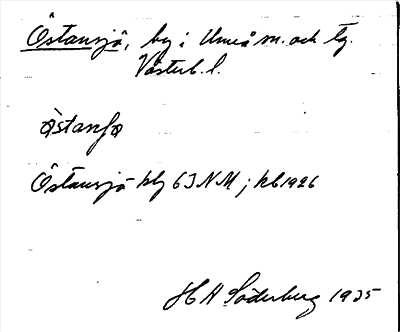 Östansjö, by i Umeå sn. och tg.
Västerb. l.
Östansjö kbg 63NM; kb1926
H A Söderberg 1935